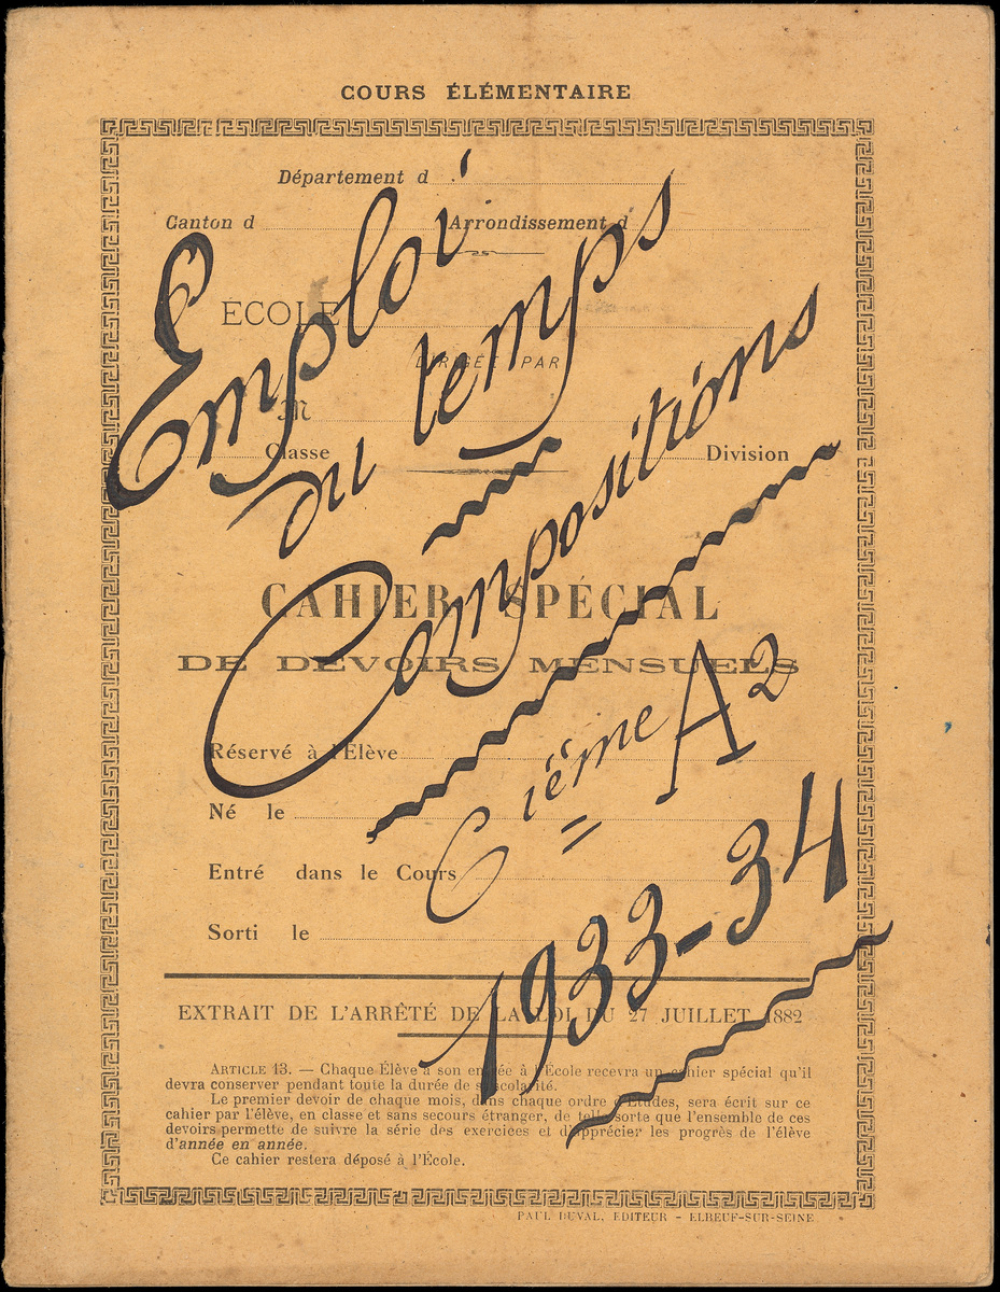 COURS ÉLÉMENTAIRE
Département d
Canton d Arrondissement d
ÉCOLE
DIRIGÉE PAR
M
Classe Division
Emploi
du temps
Compositions
CAHIER SPÉCIAL
DE DEVOIRS MENSUELS
6ième A2
Réservé à l'Élève
Né le
Entré dans le Cours
Sorti le
1933-34
EXTRAIT DE L'ARRÊTÉ DE LA LOI DU 27 JUILLET 1882
ARTICLE 13. — Chaque Élève à son entrée à l'École recevra un cahier spécial qu'il
devra conserver pendant toute la durée de sa scolarité.
Le premier devoir de chaque mois, dans chaque ordre d'Études, sera écrit sur ce
cahier par l'élève, en classe et sans secours étranger, de telle sorte que l'ensemble de ces
devoirs permette de suivre la série des exercices et d'apprécier les progrès de l'élève
d'année en année.
Ce cahier restera déposé à l'École.
PAUL DUVAL, EDITEUR - ELBEUF-SUR-SEINE